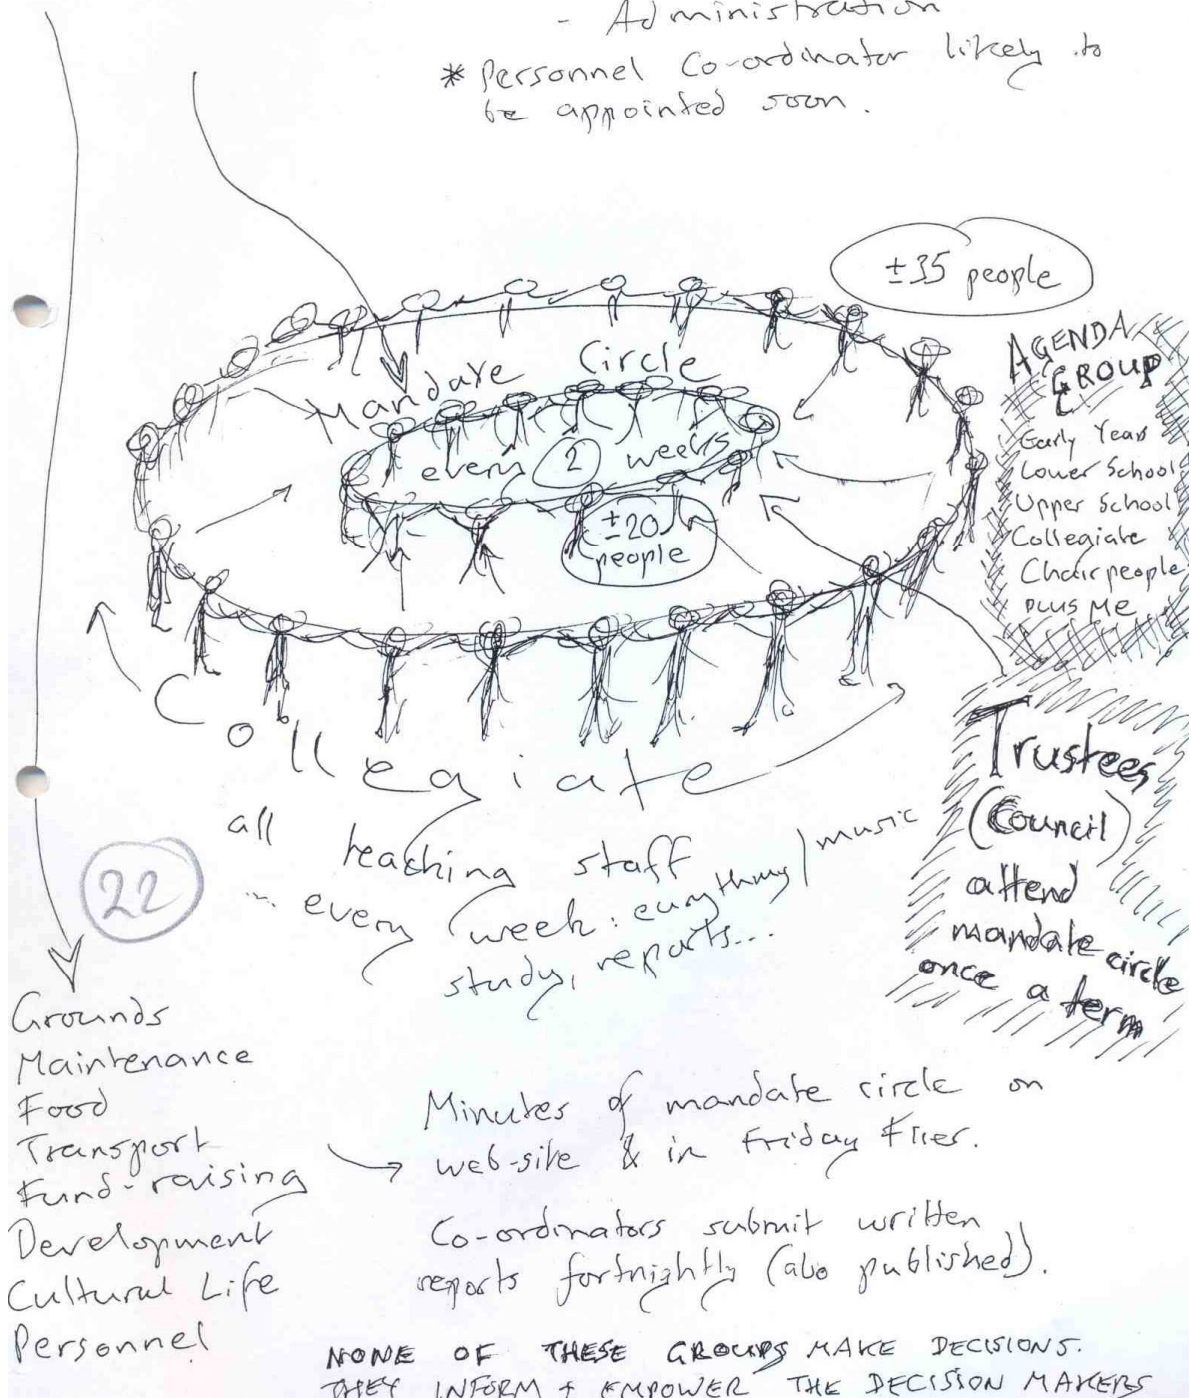 - Administration
* Personnel Co-ordinator likely to
be appointed soon.
±35 people
Mandate Circle
every 2 weeks
±20
people
AGENDA
GROUP
Early Years
Lower School
Upper School
Collegiate
Chairpeople
PLUS ME
Collegiate
all teaching staff
... every week: eurythmy/music
study, reports...
Trustees
(Council)
attend
mandate circle
once a term
22
Grounds
Maintenance
Food
Transport
Fund-raising
Development
Cultural Life
Personnel
Minutes of mandate circle on
web-site & in Friday Flier.
Co-ordinators submit written
reports fortnightly (also published).
NONE OF THESE GROUPS MAKE DECISIONS.
THEY INFORM + EMPOWER THE DECISION MAKERS